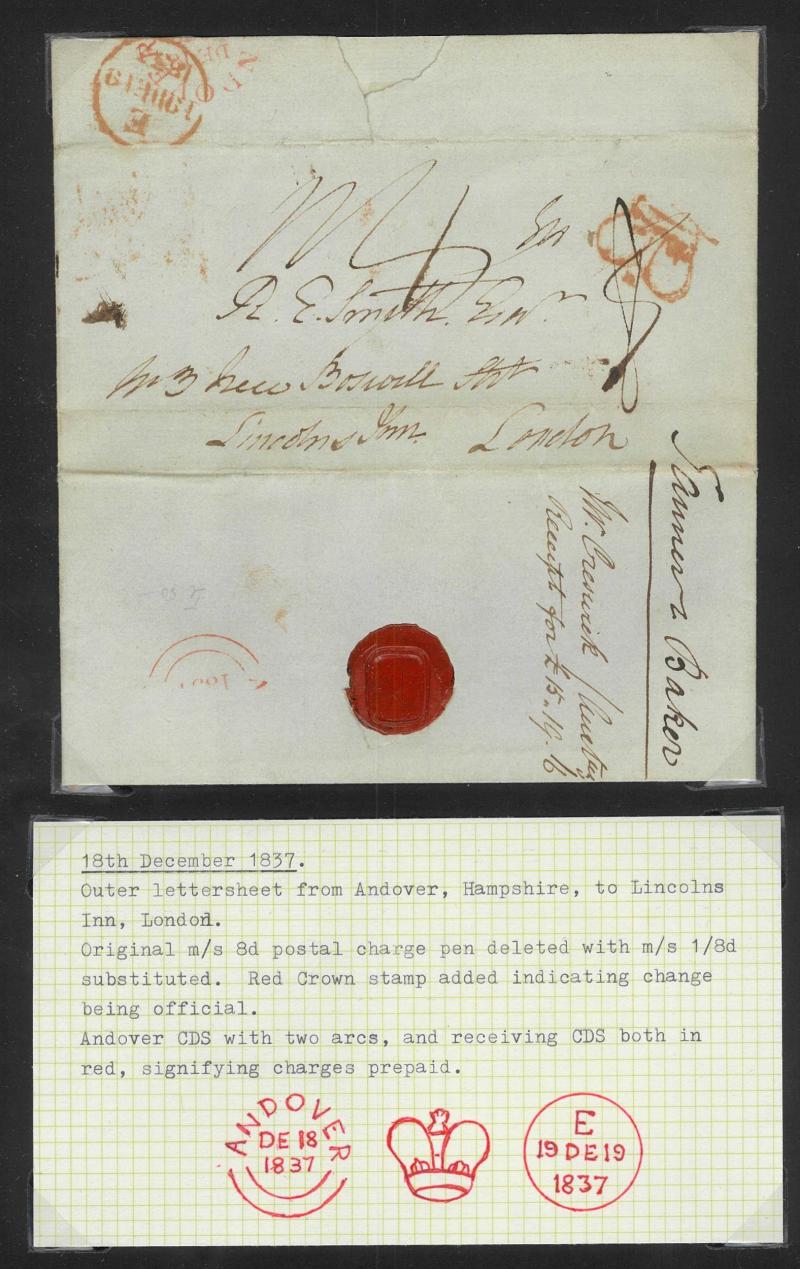 NDO
DE
R
E
19DE19
1837
Esq
8
R. E. Smyth. Esqr.
No 3 New Boswell Strt
Lincolns Inn. London
Tanner & Baker
Mr. Creswick
Receipt for £ 15-19-6
18th December 1837.
Outer lettersheet from Andover, Hampshire, to Lincolns
Inn, London.
Original m/s 8d postal charge pen deleted with m/s 1/8d
substituted. Red Crown stamp added indicating change
being official.
Andover CDS with two arcs, and receiving CDS both in
red, signifying charges prepaid.
ANDOVER
DE 18
1837
E
19 DE 19
1837